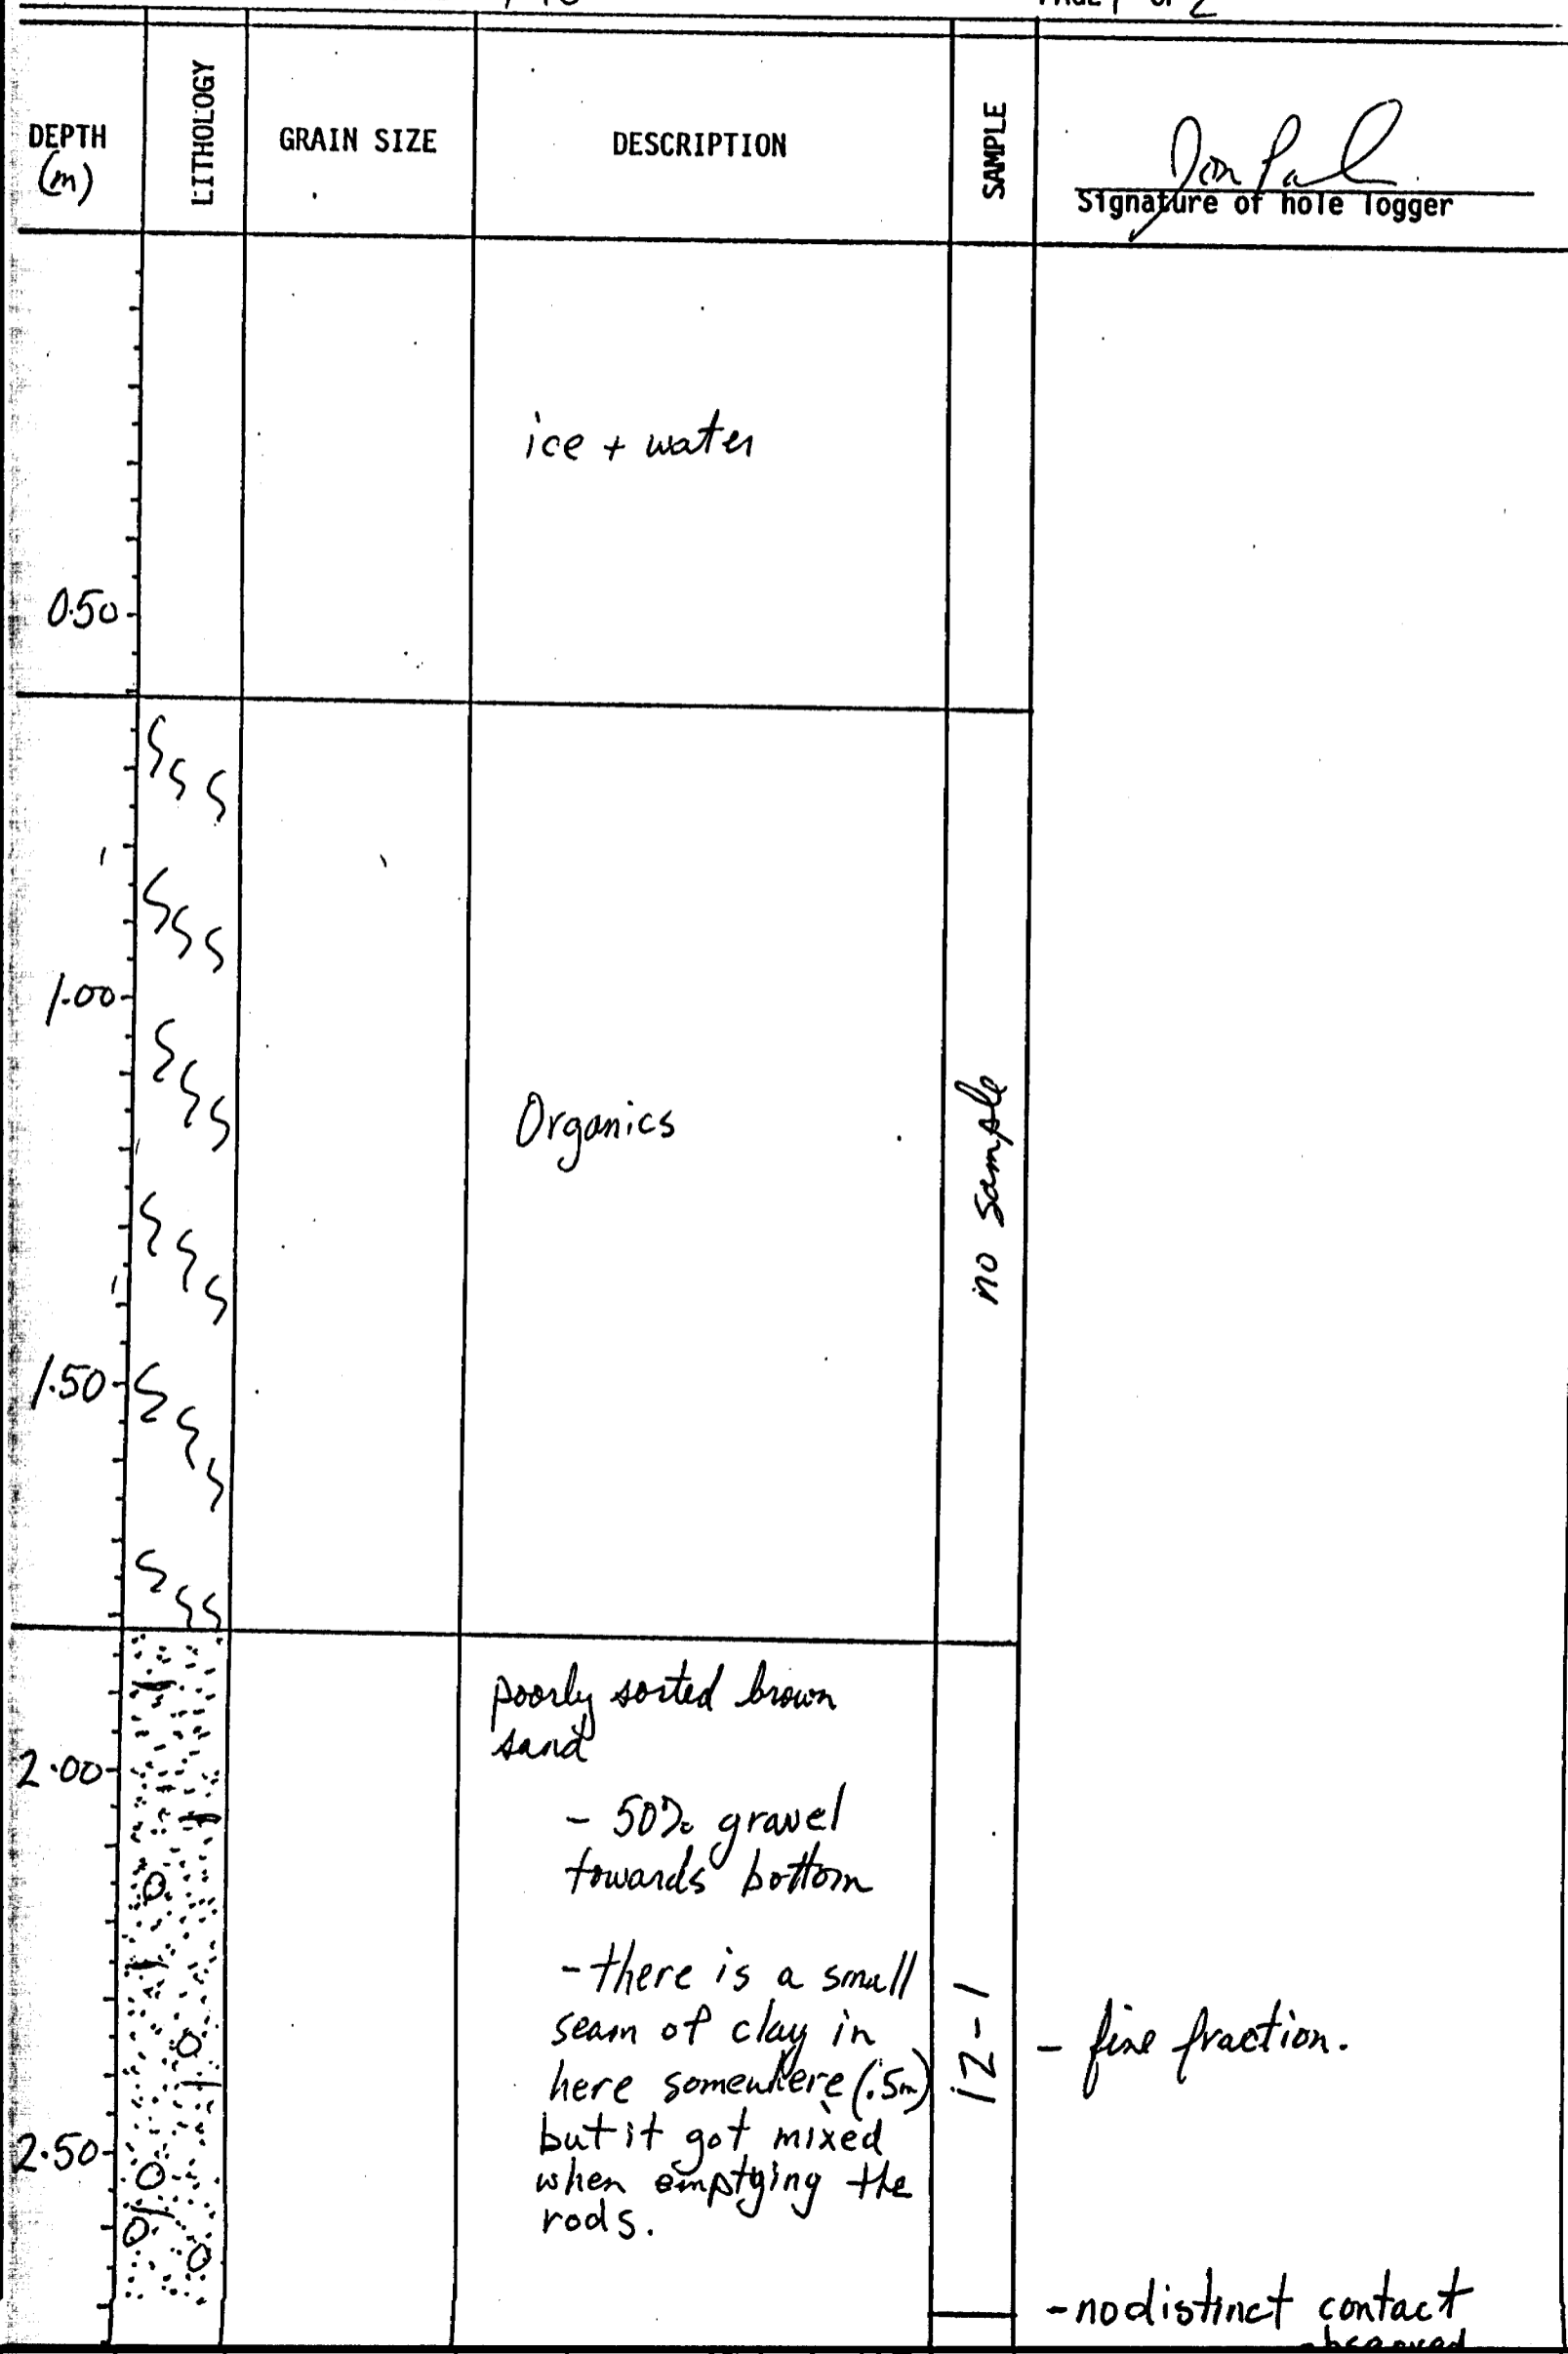 PAGE 1 OF 2
DEPTH
(m)
LITHOLOGY
GRAIN SIZE
DESCRIPTION
SAMPLE
Signature of hole logger
ice + water
0.50
1.00
Organics
no sample
1.50
poorly sorted brown
sand
2.00
- 50% gravel
towards bottom
- there is a small
seam of clay in
here somewhere (.5m)
but it got mixed
when emptying the
rods.
12-1
- fine fraction.
2.50
- no distinct contact
observed